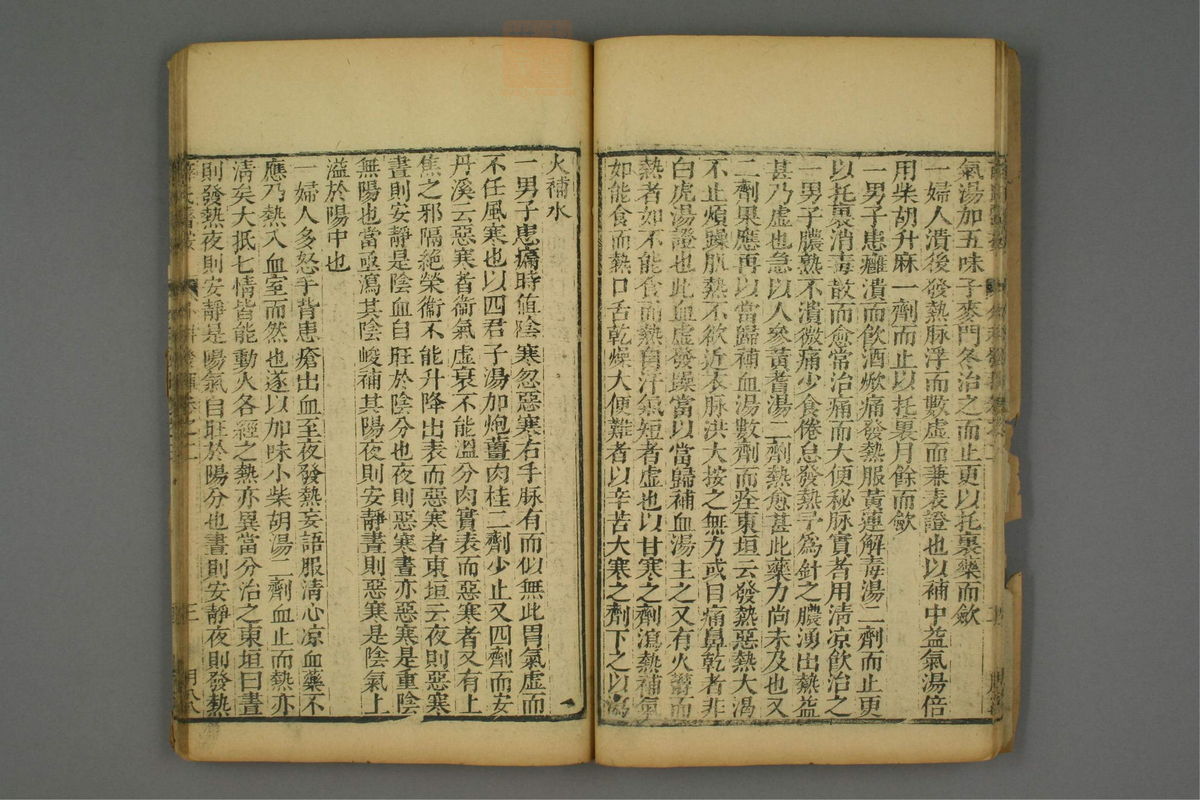 氣湯加五味子麥門冬治之而止更以托裏藥而斂
一婦人潰後發熱脉浮而數虛而兼表證也以補中益氣湯倍
用柴胡升麻一劑而止以托裏月餘而斂
一男子患癰潰而飲酒焮痛發熱服黃連解毒湯二劑而止更
以托裏消毒散而愈常治痛而大便秘脉實者用清凉飲治之
一男子膿熟不潰微痛少食倦怠發熱予為針之膿湧出熱益
甚乃虛也急以人參黃耆湯二劑熱愈甚此藥力尚未及也又
二劑果應再以當歸補血湯數劑而痊東垣云發熱惡熱大渴
不止煩躁肌熱不欲近衣脉洪大按之無力或目痛鼻乾者非
白虎湯證也此血虛發躁當以當歸補血湯主之又有火鬱而
熱者如不能食而熱自汗氣短者虛也以甘寒之劑瀉熱補氣
如能食而熱口舌乾燥大便難者以辛苦大寒之劑下之以瀉
火補水
一男子患癰時值陰寒忽惡寒右手脉有而似無此胃氣虛而
不任風寒也以四君子湯加炮薑肉桂二劑少止又四劑而安
丹溪云惡寒者衞氣虛衰不能溫分肉實表而惡寒者又有上
焦之邪隔絶榮衞不能升降出表而惡寒者東垣云夜則惡寒
晝則安靜是陰血自旺於陰分也夜則惡寒晝亦惡寒是重陰
無陽也當亟瀉其陰峻補其陽夜則安靜晝則惡寒是陰氣上
溢於陽中也
一婦人多怒手背患瘡出血至夜發熱妄語服清心凉血藥不
應乃熱入血室而然也遂以加味小柴胡湯二劑血止而熱亦
清矣大抵七情皆能動火各經之熱亦異當分治之東垣曰晝
則發熱夜則安靜是陽氣自旺於陽分也晝則安靜夜則發熱